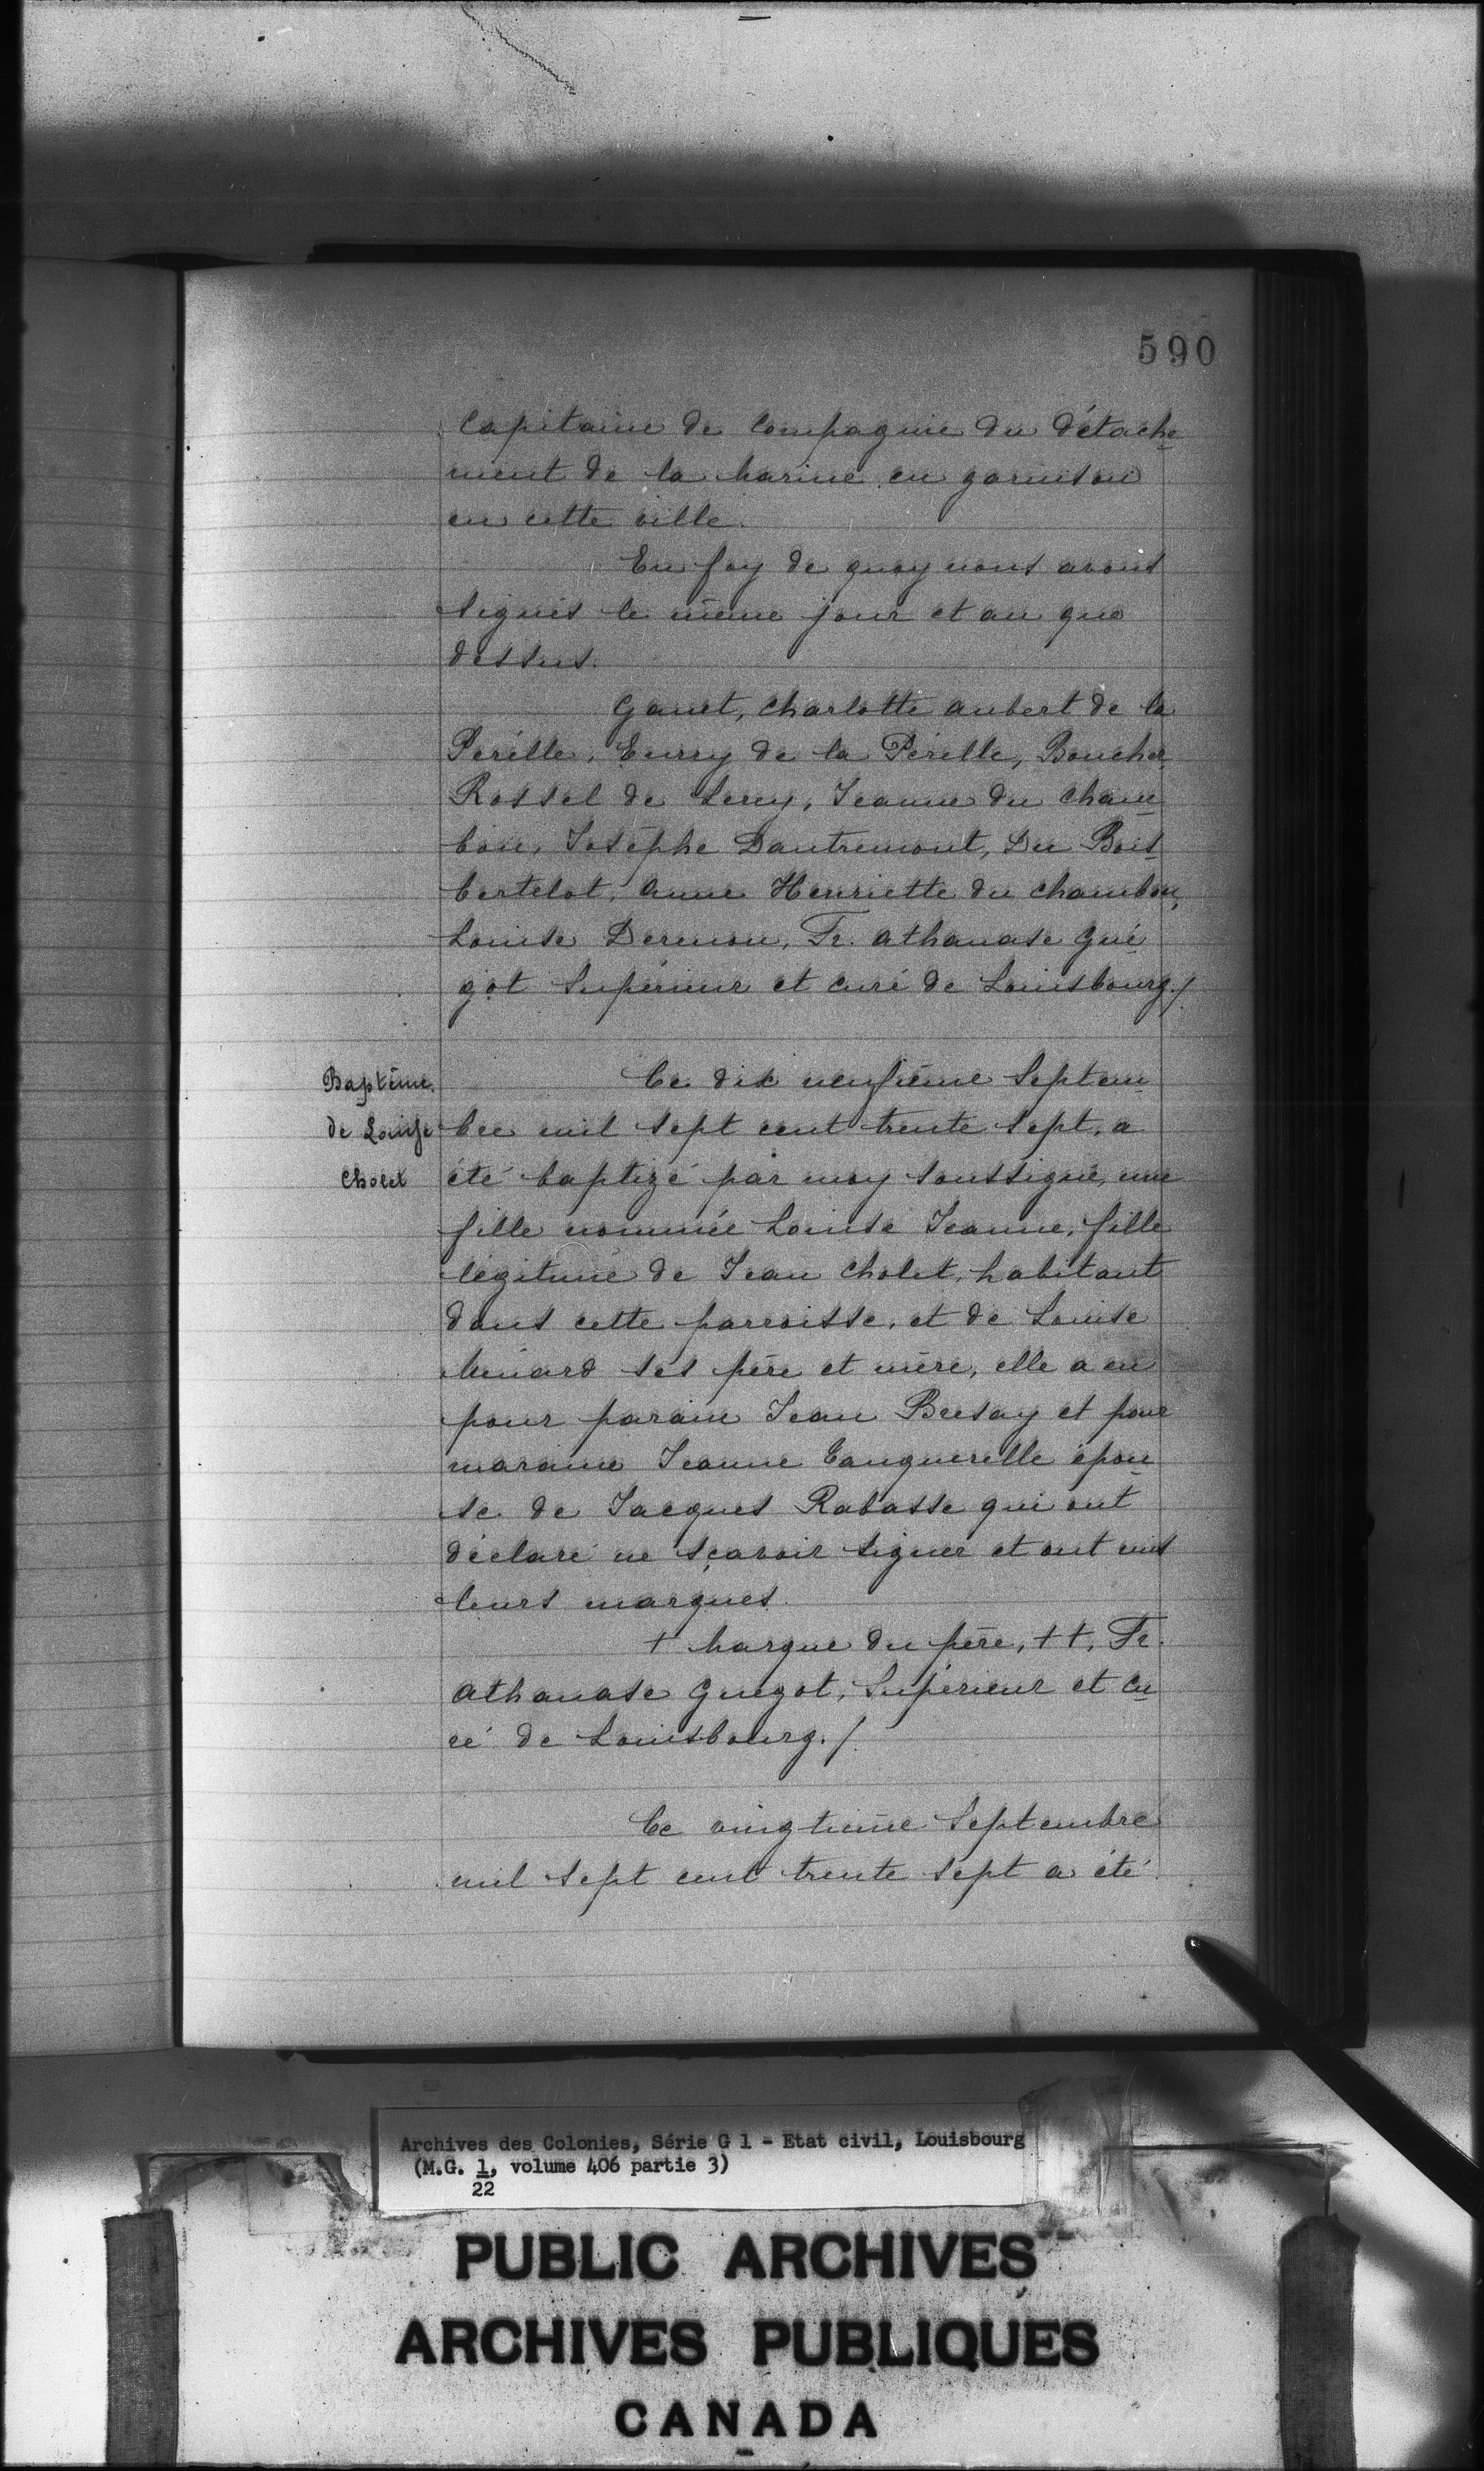 590
Capitaine de Compagnie du détache
ment de la Marine en garnison
en cette ville.
En foy de quoy nous avons
signés le même jour et an que
dessus.
Ganet, Charlotte Aubert de la
Perélle, Eurry de la Pérelle, Boucher
Rossel de Lery, Jeanne du Cham
bon, Josephe Dantremont, Du Bois
bertelot, Anne Henriette du Chambon,
Louise Dermon, Fr. Athanase Gué
got Supérieur et curé de Louisbourg./
Baptême
de Louise
Cholet
Ce dix neufième Septem
bre mil sept cent trente sept, a
été baptizé par moy soussigné, une
fille nommée Louise Jeanne, fille
légitime de Jean Cholet, habitant
dans cette parroisse, et de Louise
Menard ses père et mère, elle a eu
pour parain Jean Bresay et pour
maraine Jeanne Tanguerelle épou
se de Jacques Rabasse qui ont
déclaré ne sçavoir signer et ont mis
leurs marques.
+ Marque du père, ++, Fr.
Athanase Guegot, Supérieur et Cu
ré de Louisbourg./
Ce vingtième Septembre
mil sept cent trente sept a été
Archives des Colonies, Série G 1 - Etat civil, Louisbourg
(M.G. 1, volume 406 partie 3)
22
PUBLIC ARCHIVES
ARCHIVES PUBLIQUES
CANADA